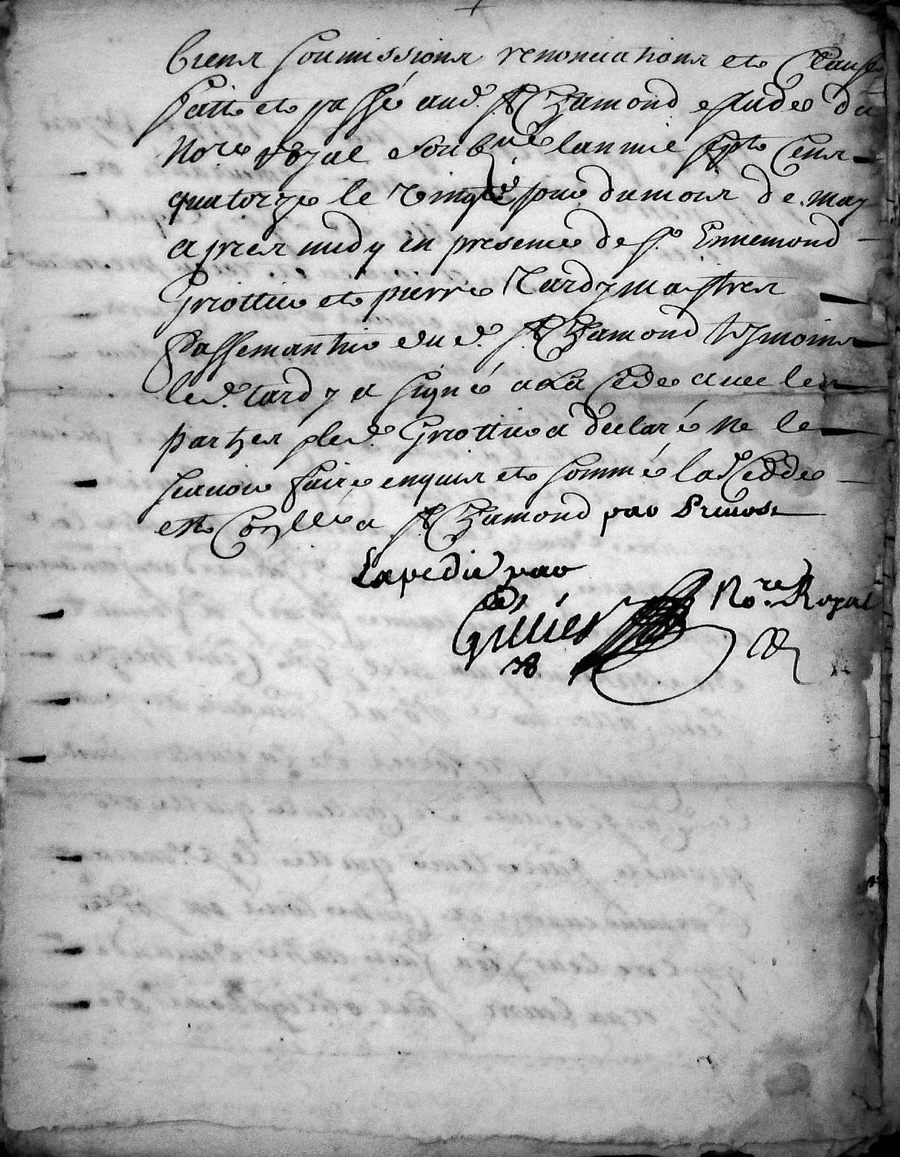 biens soumissions renonciations et clauses
fait et passé aud. St Chamond estude du
Nore royal soubné lannée sept cens
quatorze le vingt du mois de may
apres midy en presence de sr Ennemond
Griottier et pierre Tardy maistres
passemantier dud. St Chamond tesmoins
led. tardy a signé a la cede avec les
parties & led. Griottier a declaré ne le
scavoir faire enquis et sommé la Cedde
est Coollée a St Chamond par
Expedié par
Grillier Nore Royal